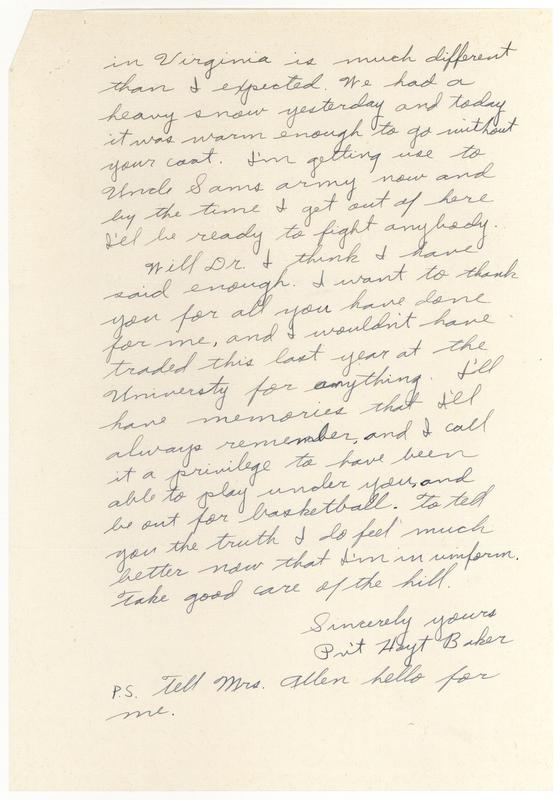 in Virginia is much different
than I expected. We had a
heavy snow yesterday and today
it was warm enough to go without
your coat. I'm getting use to
Uncle Sams army now and
by the time I get out of here
I'll be ready to fight anybody.
Will Dr. I think I have
said enough. I want to thank
you for all you have done
for me, and I wouldn't have
traded this last year at the
Universty for anything. I'll
have memories that I'll
always remember, and I call
it a privilege to have been
able to play under you, and
be out for basketball. To tell
you the truth I do feel much
better now that I'm in uniform.
Take good care of the hill.
Sincerely yours
Pvt Hoyt Baker
P.S. Tell Mrs. Allen hello for
me.